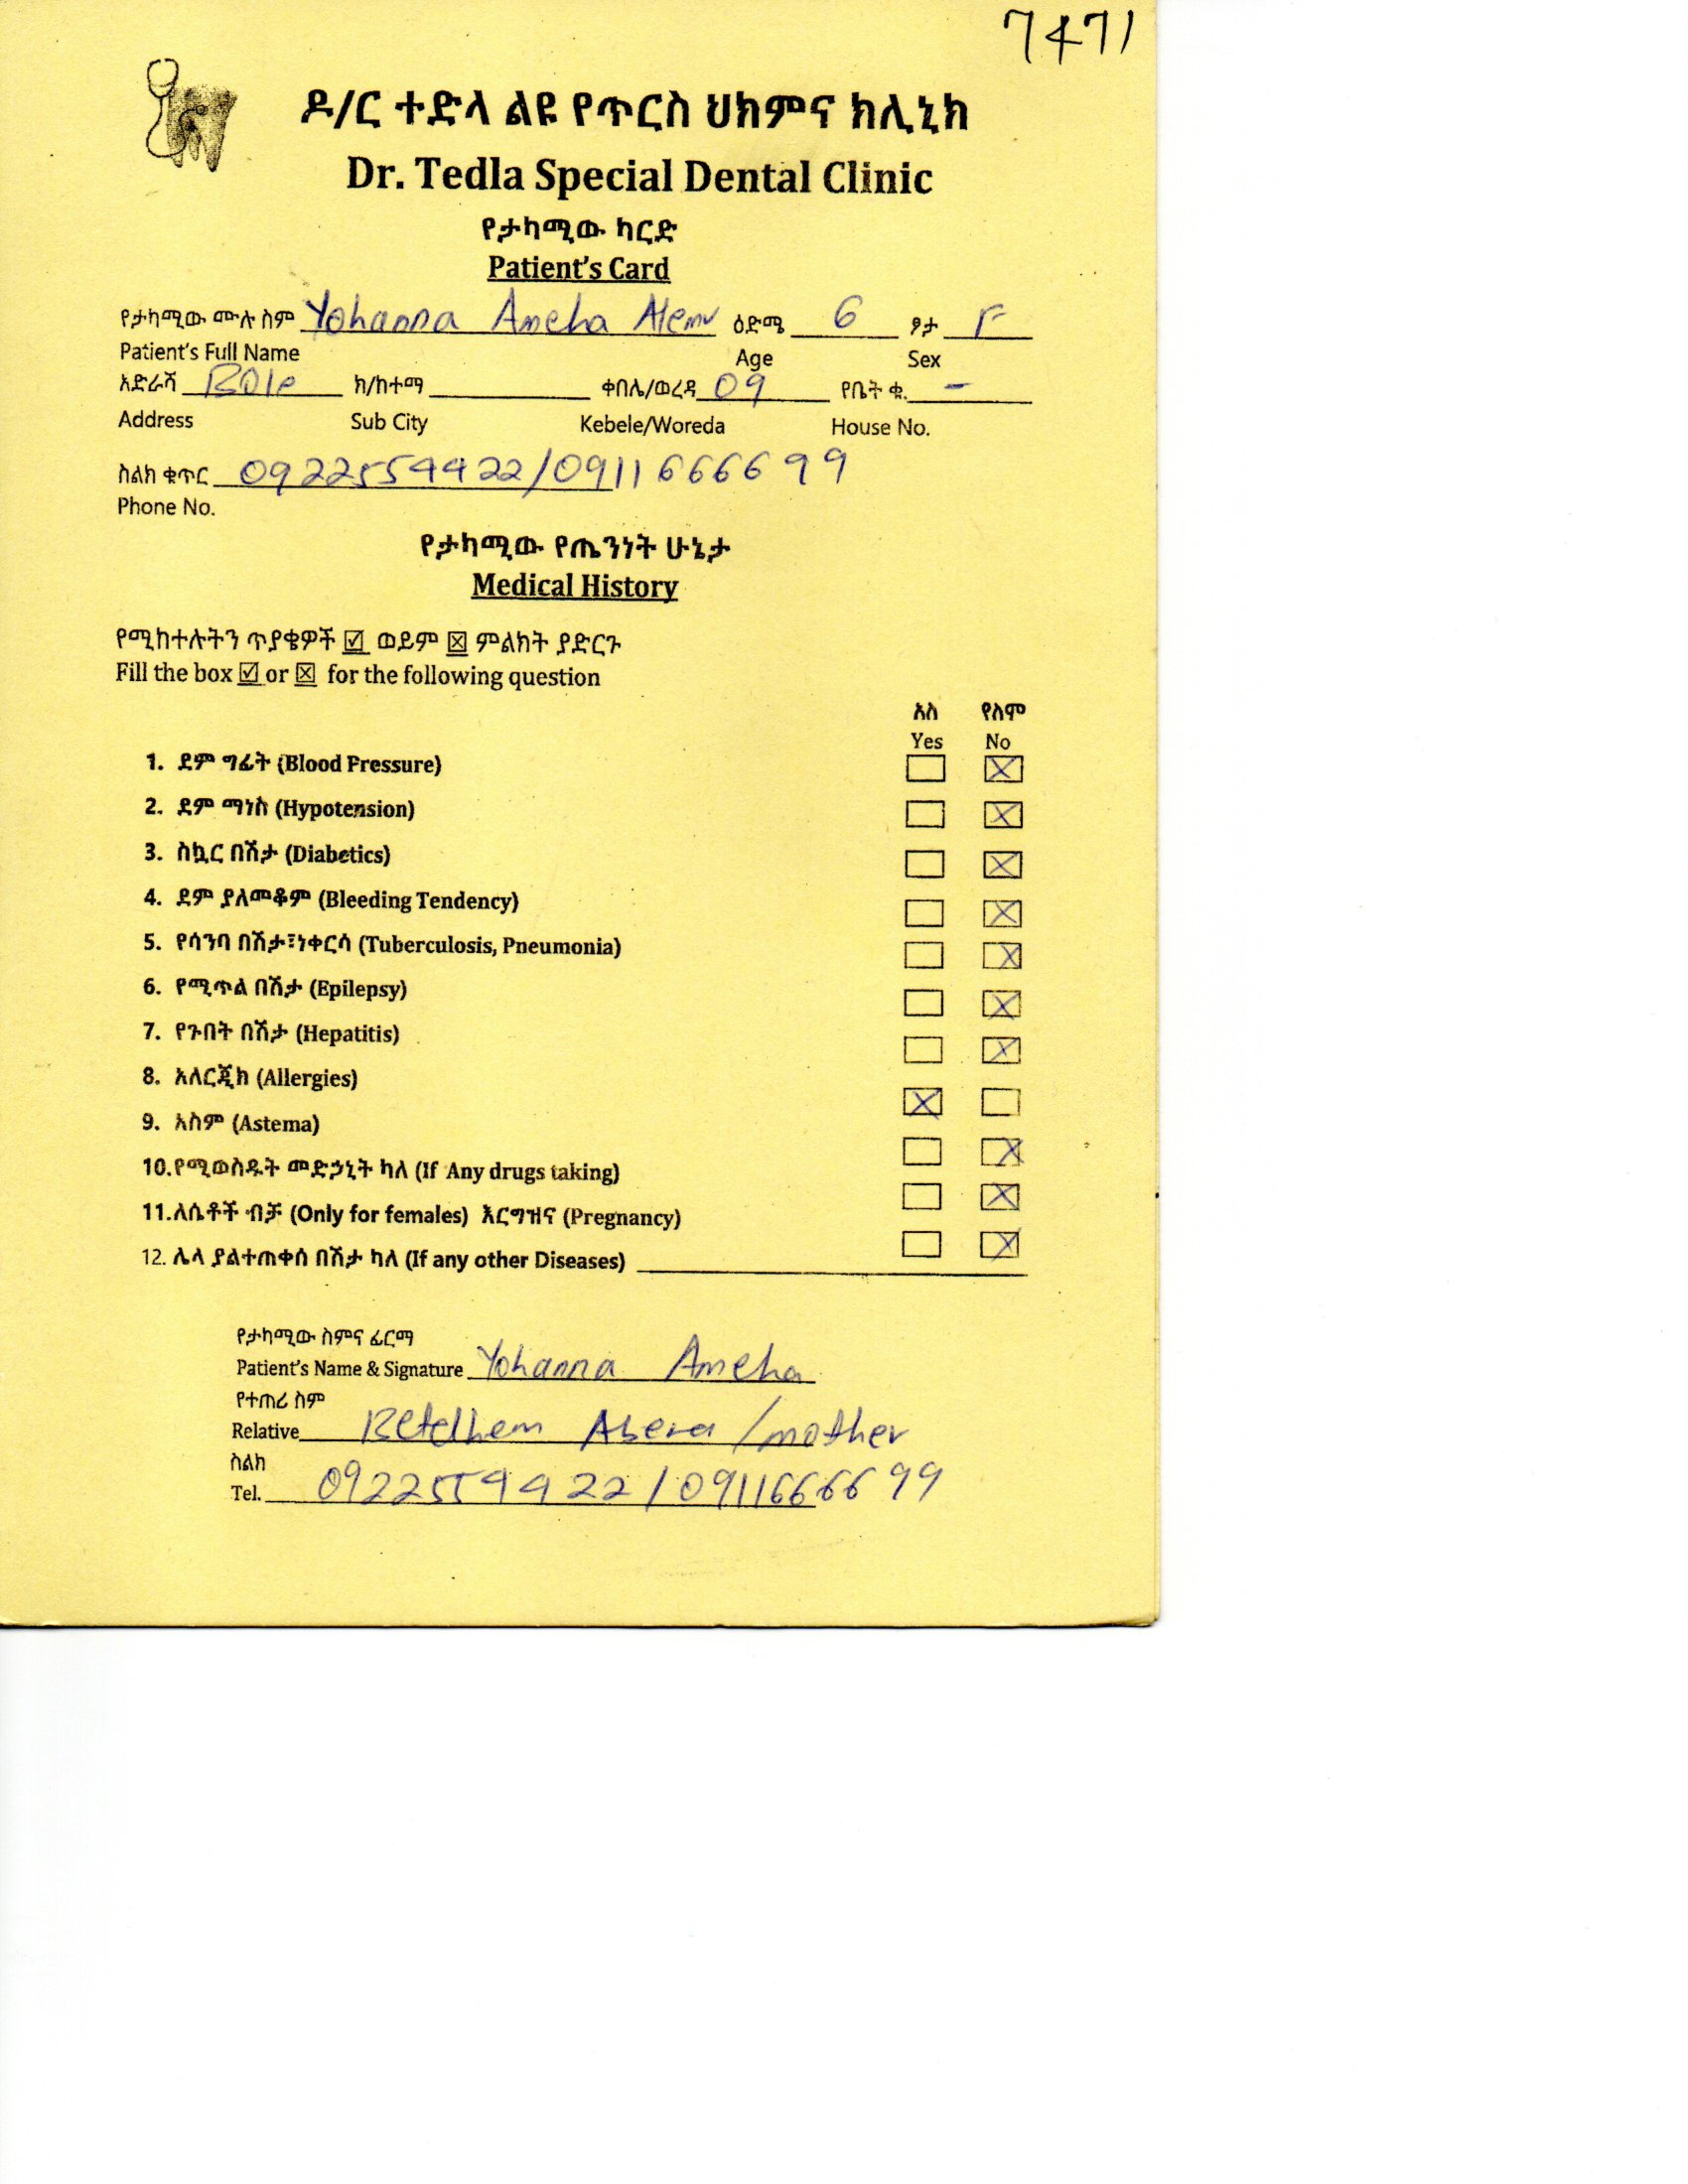 7471
ዶ/ር ተድላ ልዩ የጥርስ ህክምና ክሊኒክ
Dr. Tedla Special Dental Clinic
የታካሚው ካርድ
Patient's Card
የታካሚው ሙሉ ስም Yohanna Ameha Alemu ዕድሜ 6 ፆታ F
Patient's Full Name Age Sex
አድራሻ Bole ክ/ከተማ ቀበሌ/ወረዳ 09 የቤት ቁ. -
Address Sub City Kebele/Woreda House No.
ስልክ ቁጥር 0922554422/0911666699
Phone No.
የታካሚው የጤንነት ሁኔታ
Medical History
የሚከተሉትን ጥያቄዎች ☑ ወይም ☒ ምልክት ያድርጉ
Fill the box ☑ or ☒ for the following question
አለ የለም
Yes No
1. ደም ግፊት (Blood Pressure) ☐ ☒
2. ደም ማነስ (Hypotension) ☐ ☒
3. ስኳር በሽታ (Diabetics) ☐ ☒
4. ደም ያለመቆም (Bleeding Tendency) ☐ ☒
5. የሳንባ በሽታ፣ነቀርሳ (Tuberculosis, Pneumonia) ☐ ☒
6. የሚጥል በሽታ (Epilepsy) ☐ ☒
7. የጉበት በሽታ (Hepatitis) ☐ ☒
8. አለርጂክ (Allergies) ☒ ☐
9. አስም (Astema) ☐ ☒
10.የሚወስዱት መድኃኒት ካለ (If Any drugs taking) ☐ ☒
11.ለሴቶች ብቻ (Only for females) እርግዝና (Pregnancy) ☐ ☒
12. ሌላ ያልተጠቀሰ በሽታ ካለ (If any other Diseases)
የታካሚው ስምና ፊርማ
Patient's Name & Signature Yohanna Ameha
የተጠሪ ስም
Relative Betelhem Abera /mother
ስልክ
Tel. 0922554422/0911666699